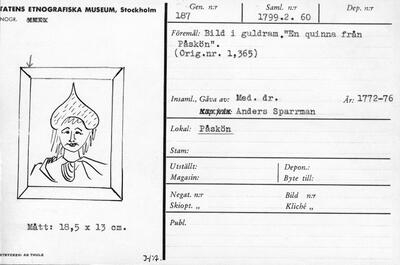 TATENS ETNOGRAFISKA MUSEUM, Stockholm
NOGR.
Mått: 18,5 x 13 cm.
STRYCKERI AB THULE
Gen. n:r
187
Saml. n:r
1799.2. 60
Dep. n:r
Föremål: Bild i guldram,"En quinna från
Påskön".
(Orig.nr. 1,365)
Insaml., Gåva av: Med. dr.
Anders Sparrman
År: 1772-76
Lokal: Påskön
Stam:
Utställt:
Depon.:
Magasin:
Byte till:
Negat. n:r
Bild n:r
Skiopt. „
Kliché „
Publ.